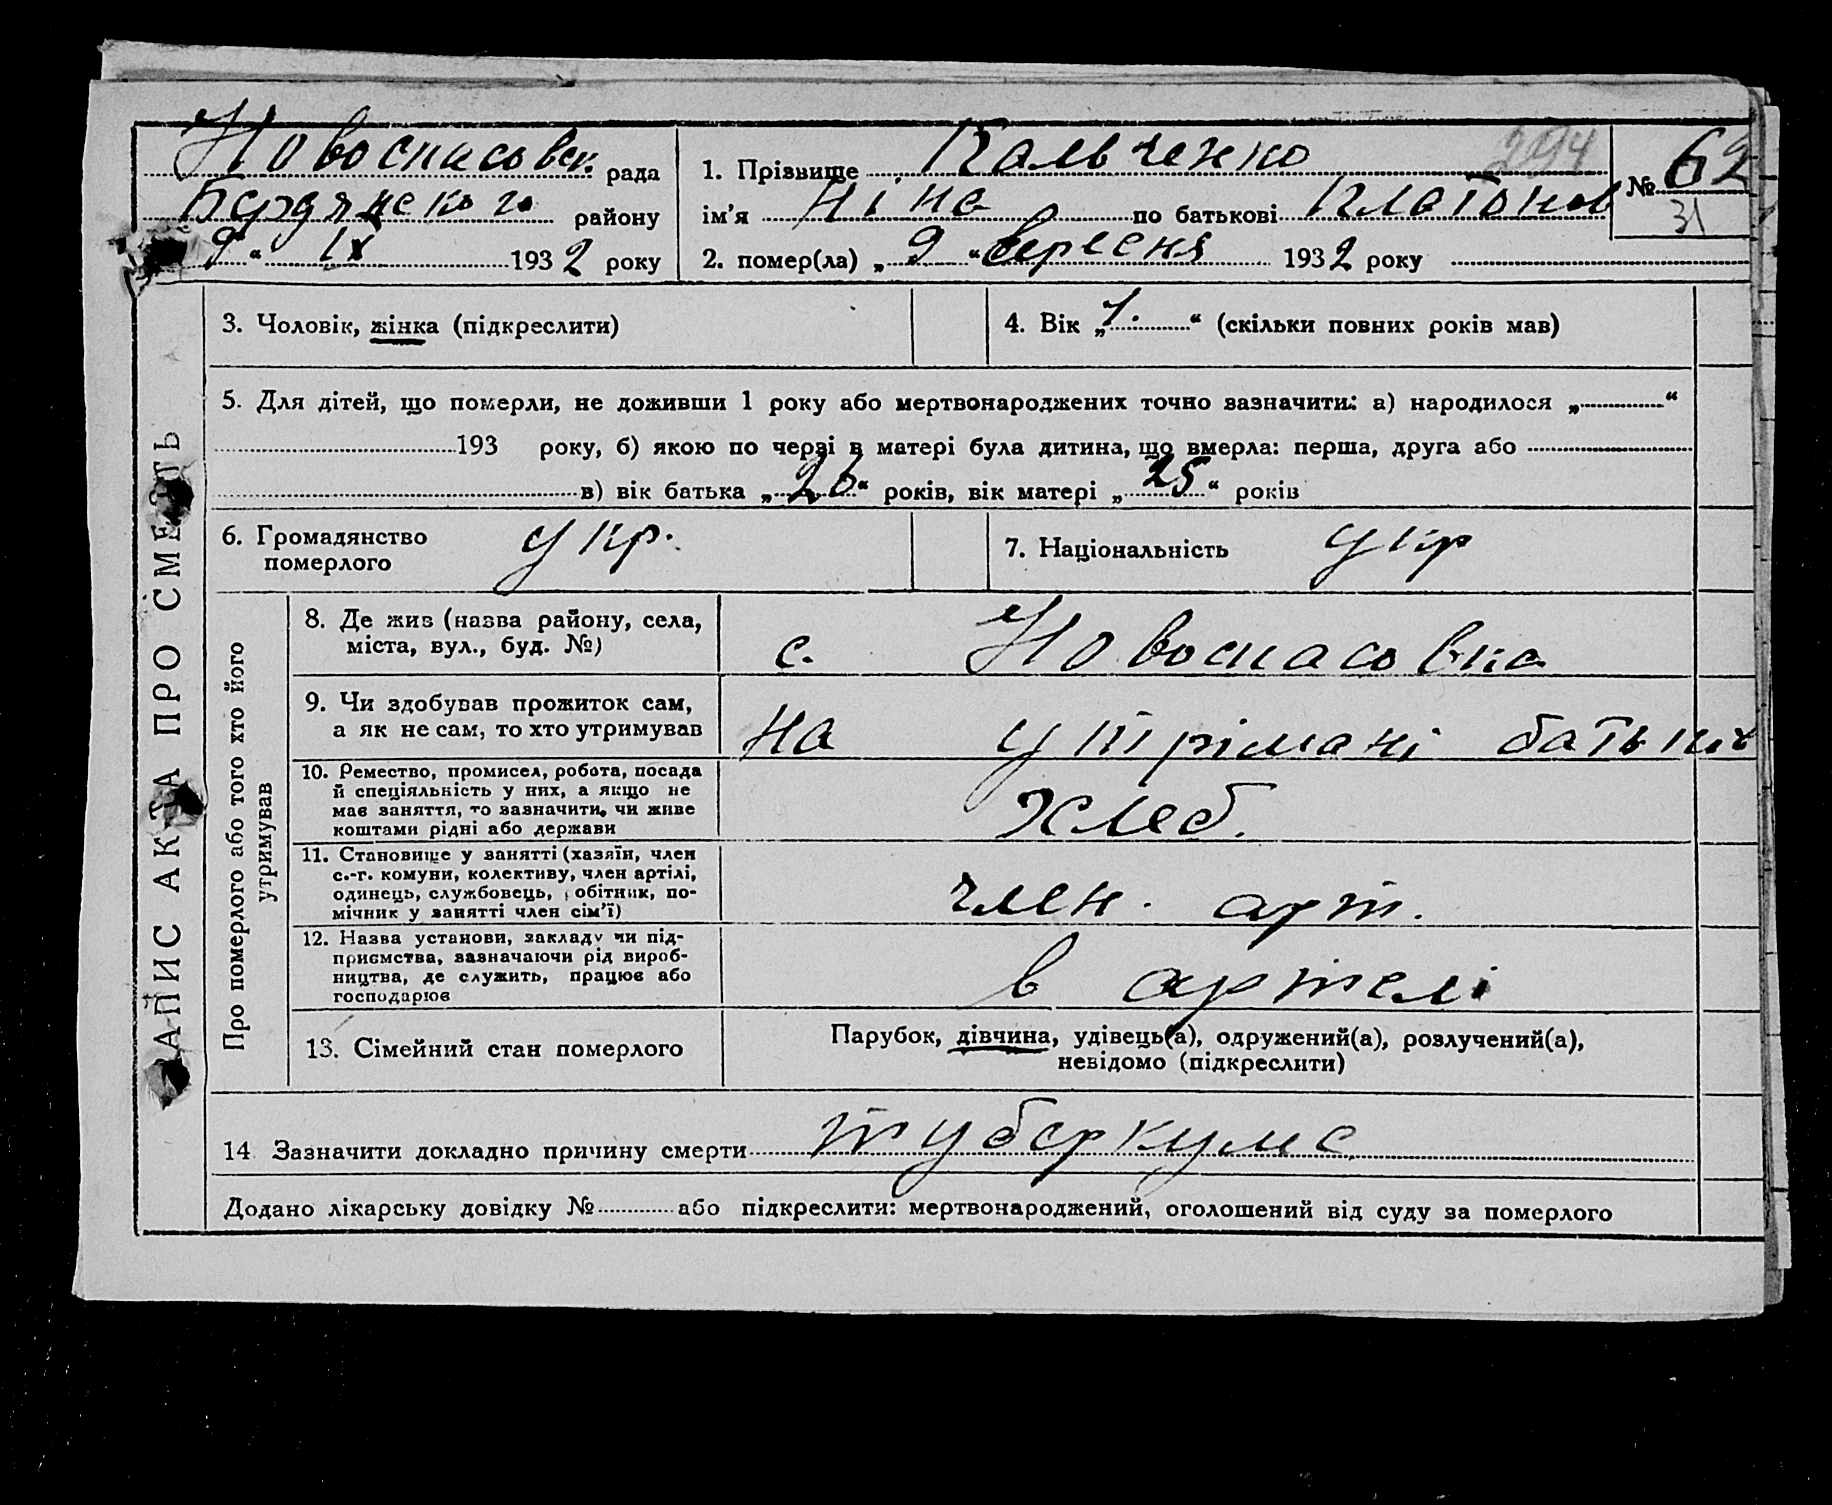 Новоспасовск. рада
Бердянского району
"9" IX 1932 року
1. Прізвище Кальченко 294
ім'я Ніна по батькові Платонов
2. помер(ла) „9" вересня 1932 року
№ 62
31
ЗАПИС АКТА ПРО СМЕРТЬ
3. Чоловік, жінка (підкреслити)
4. Вік „1." (скільки повних років мав)
5. Для дітей, що померли, не доживши 1 року або мертвонароджених точно зазначити: а) народилося „ "
193 року, б) якою по черзі в матері була дитина, що вмерла: перша, друга або
в) вік батька „26" років, вік матері „25" років
6. Громадянство
померлого укр.
7. Національність укр
Про померлого або того хто його
утримував
8. Де жив (назва району, села,
міста, вул., буд. №)
с. Новоспасовка
9. Чи здобував прожиток сам,
а як не сам, то хто утримував
на утрімані батьків
10. Ремество, промисел, робота, посада
й спеціяльність у них, а якщо не
мав заняття, то зазначити, чи живе
коштами рідні або держави
хлеб.
11. Становище у занятті (хазяїн, член
с.-г. комуни, колективу, член артілі,
одинець, службовець, робітник, по-
мічник у занятті член сім'ї)
член. арт.
12. Назва установи, закладу чи під-
приємства, зазначаючи рід вироб-
ництва, де служить, працює або
господарює
в артелі
13. Сімейний стан померлого
Парубок, дівчина, удівець(а), одружений(а), розлучений(а),
невідомо (підкреслити)
14. Зазначити докладно причину смерти туберкуле
Додано лікарську довідку № або підкреслити: мертвонароджений, оголошений від суду за померлого